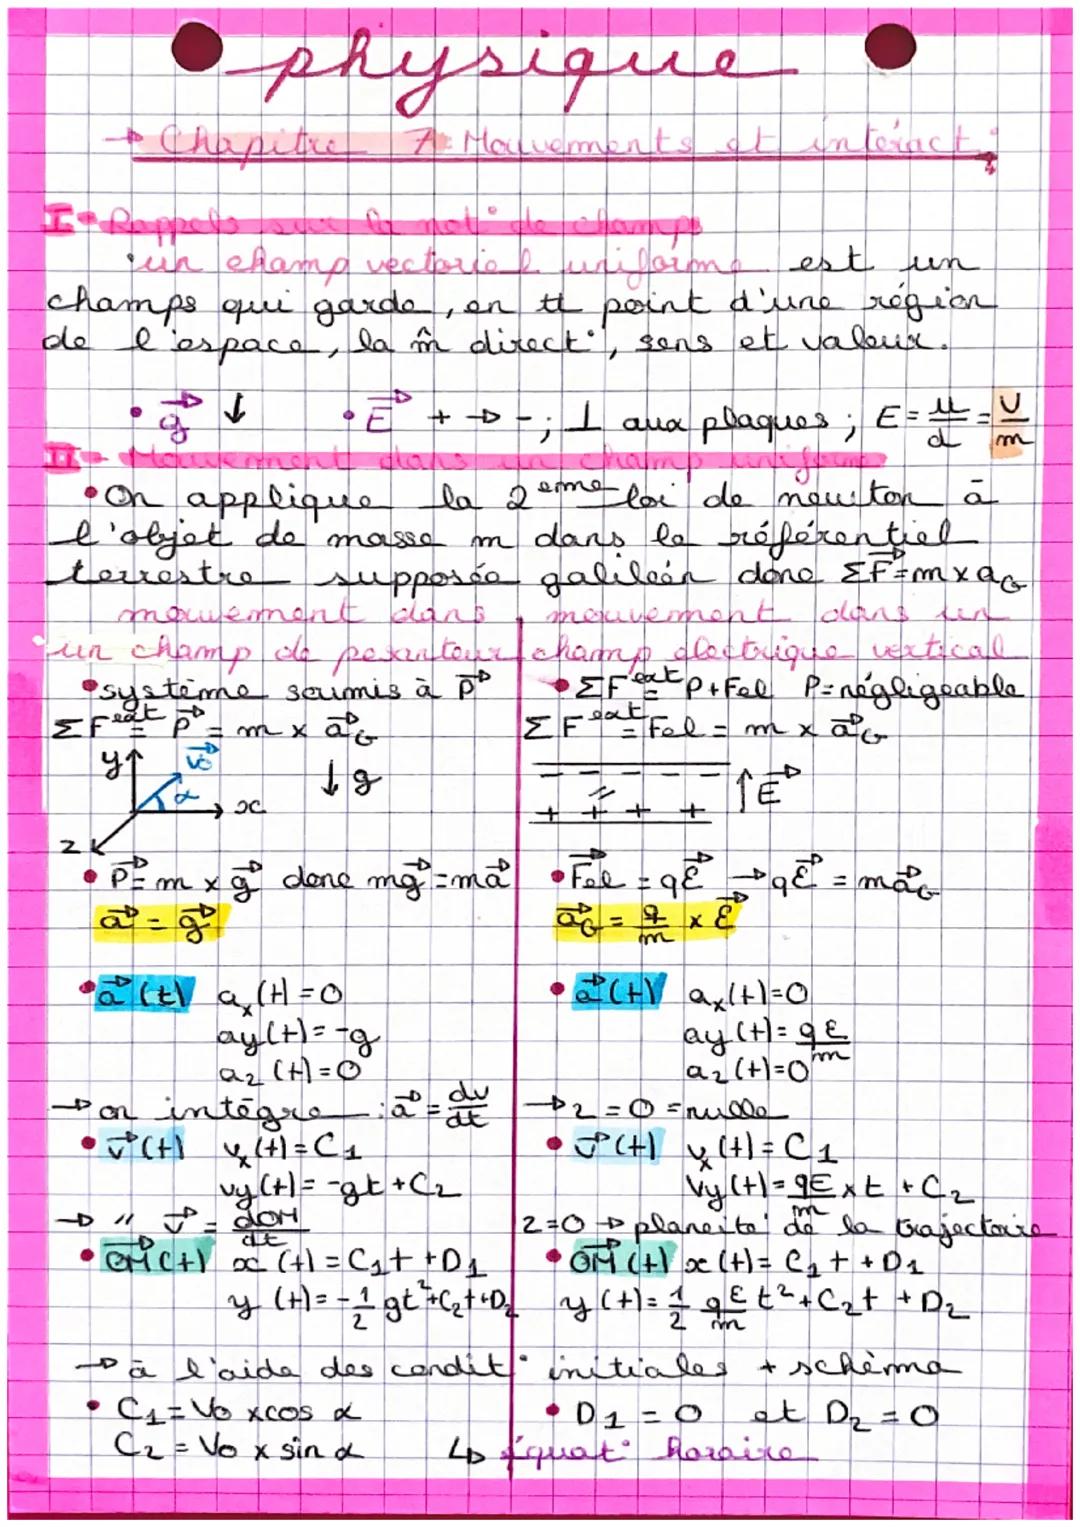 physique
→ Chapitre 7: Mouvements et intéract°
I- Rappels sur la not° de champs
• un champ vectoriel uniforme est un
champs qui garde, en tt point d'une région
de l'espace, la m̂ direct°, sens et valeur.
• g⃗ ↓ • E⃗ + → - ; ⊥ aux plaques ; E = u/d = V/m
II- Mouvement dans un champ uniforme
• On applique la 2ème loi de newton à
l'objet de masse m dans le référentiel
terrestre supposée galiléen donc ΣF⃗ = m x a_G
mouvement dans
un champ de pesanteur
• système soumis à P⃗
ΣF^ext = P⃗ = m x a⃗_G
y v⃗o α x z ↓ g
• P⃗ = m x g⃗ donc mg⃗ = ma⃗
a⃗ = g⃗
• a⃗(t) ax(t) = 0
ay(t) = -g
az(t) = 0
→ on intègre : a⃗ = dv/dt
• v⃗(t) vx(t) = C1
vy(t) = -gt + C2
→ " v⃗ = dOM/dt
• OM⃗(t) x(t) = C1t + D1
y(t) = -1/2 gt² + C2t + D2
mouvement dans un
champ électrique vertical
• ΣF^ext = P + Fel P = négligeable
ΣF^ext = Fel = m x a⃗_G
- - - - -
+ + + + ↑ E⃗
• F⃗el = qE⃗ → qE⃗ = ma⃗_G
a⃗_G = q/m x E⃗
• a⃗(t) ax(t) = 0
ay(t) = qE/m
az(t) = 0
→ z = 0 = nulle
• v⃗(t) vx(t) = C1
vy(t) = qE/m x t + C2
z = 0 → planeité de la trajectoire
• OM⃗(t) x(t) = C1t + D1
y(t) = 1/2 qE/m t² + C2t + D2
→ à l'aide des condit° initiales + schèma
• C1 = Vo x cos α • D1 = 0 et D2 = 0
C2 = Vo x sin α ↳ équat° horaire